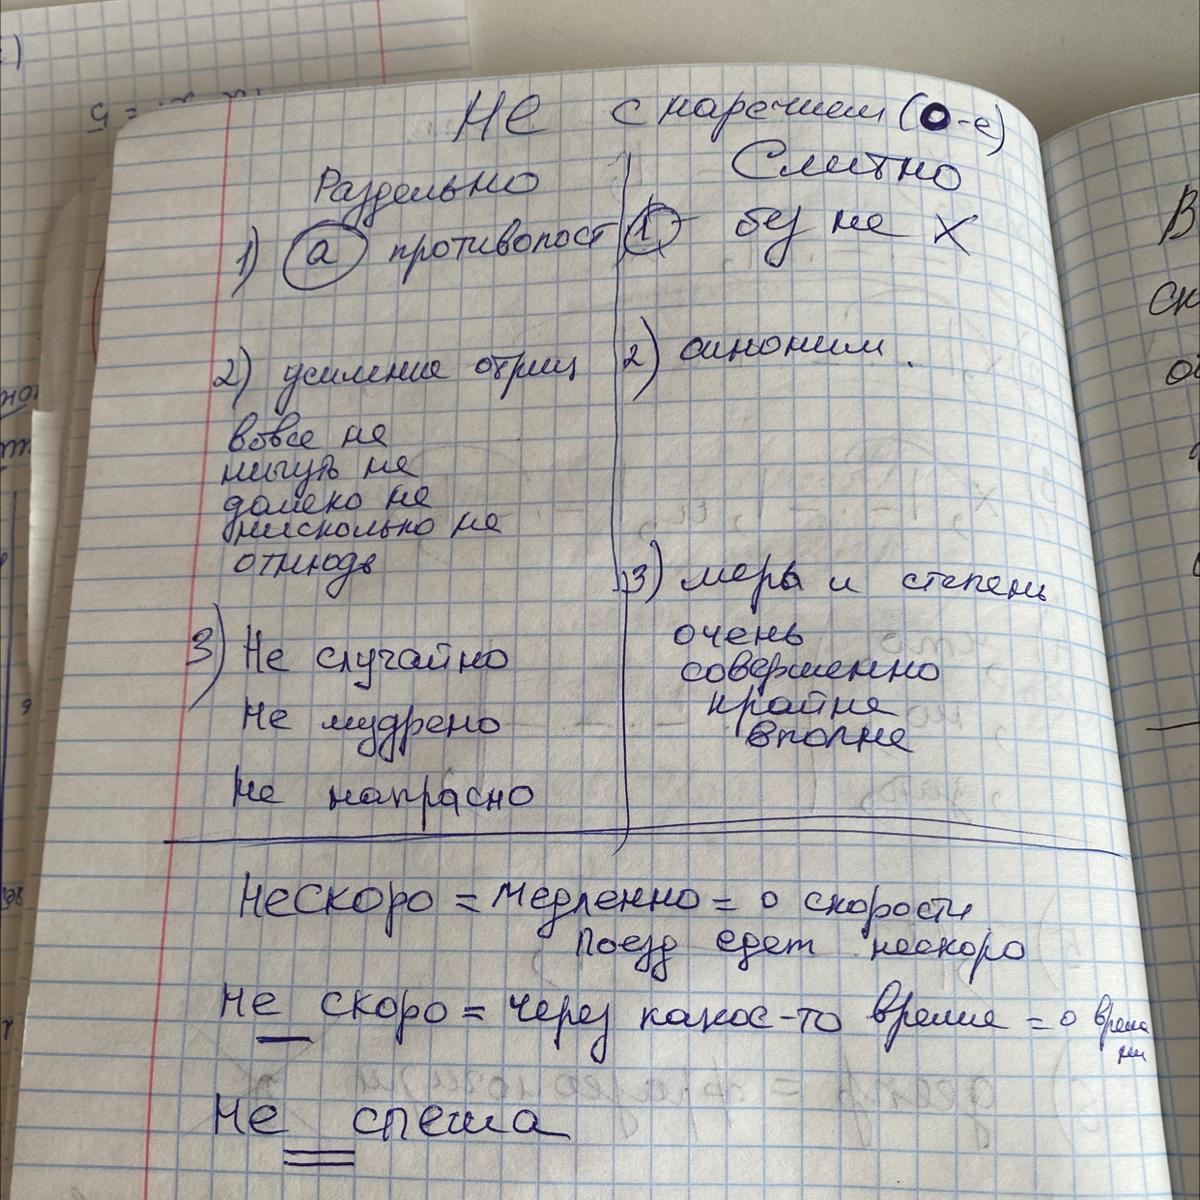 Не с наречием (о-е)
Раздельно
Слитно
1) а противопост
1 без не X
2) усиление отриц
2) синоним.
вовсе не
ничуть не
далеко не
нисколько не
отнюдь
3) меры и степень
очень
совершенно
крайне
вполне
3) Не случайно
Не мудрено
Не напрасно
Нескоро = медленно = о скорости
Поезд едет нескоро
Не скоро = через какое-то время = о време
ни
Не спеша